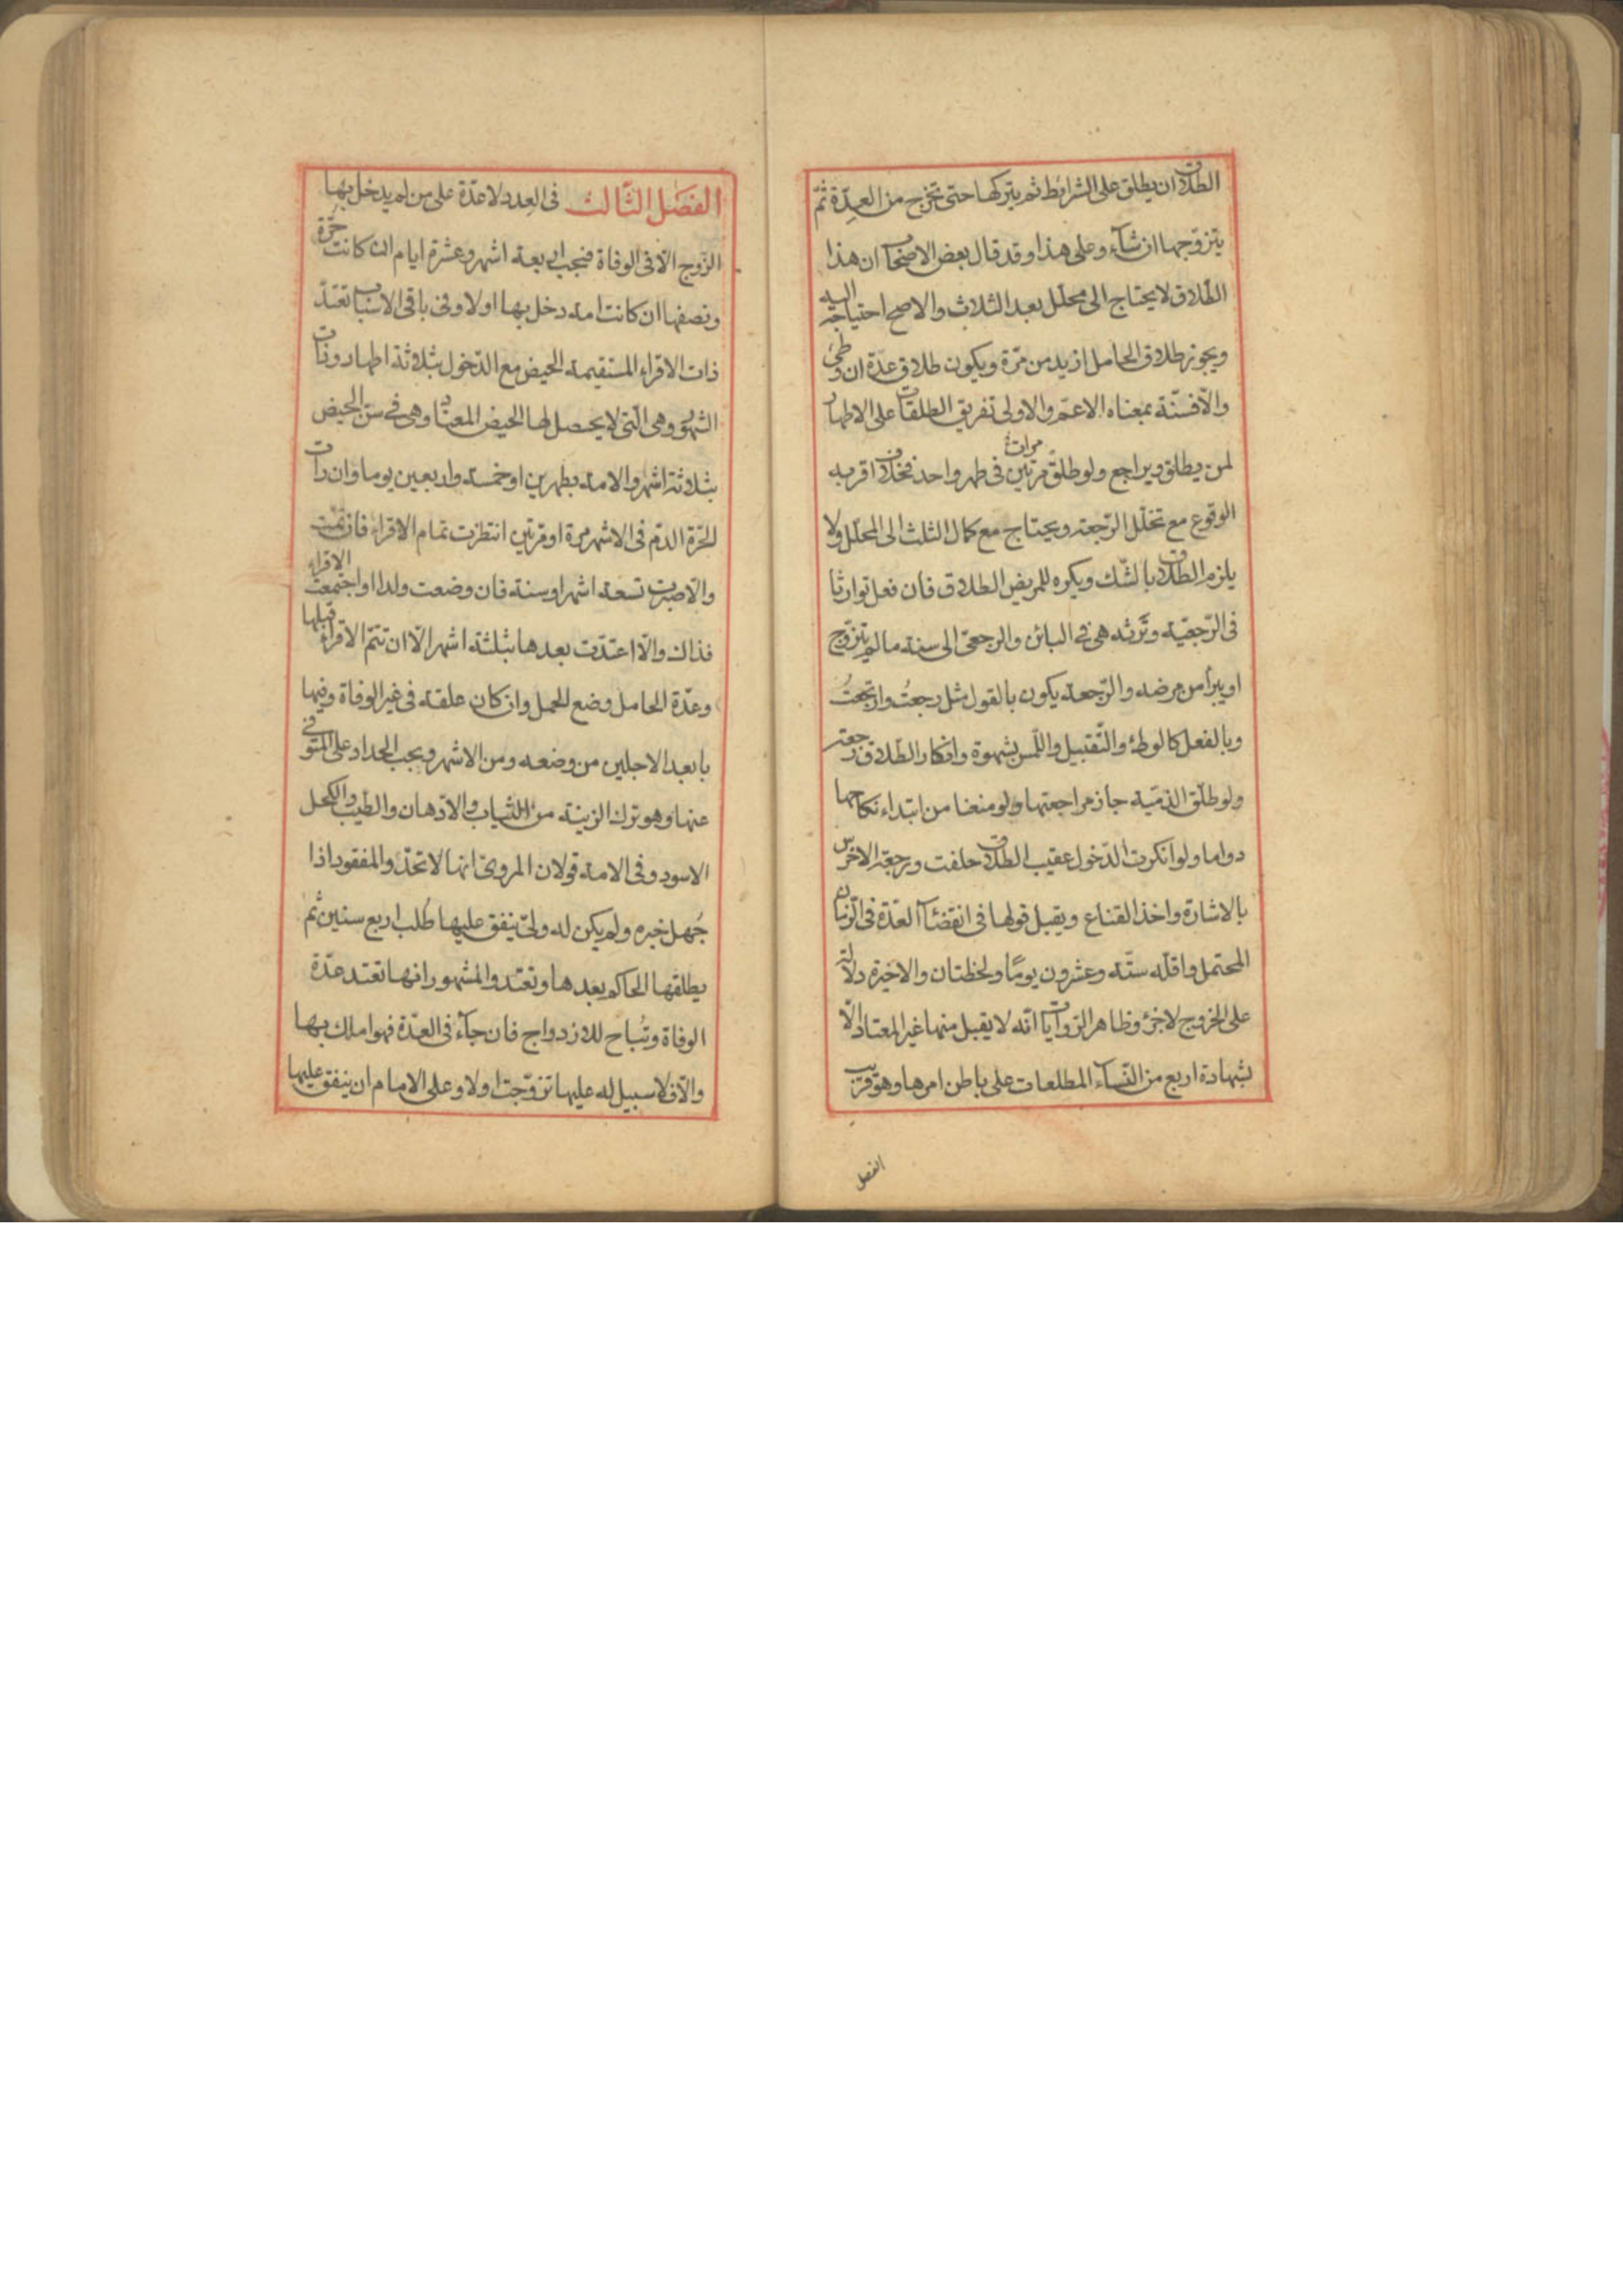 الطلاق ان يطلق على الشرائط ثم يتركها حتى تخرج من العِدّة ثمّ
يتزوّجها ان شآء وعلى هذا وقد قال بعض الاصحاب ان هذا
الطّلاق لا يحتاج الى محلّل بعد الثلاث والاصح احتياجه اليه
ويجوز طلاق الحامل ازيد من مرّة ويكون طلاق عدّة ان وطئ
والّا فسنّة بمعناه الاعمّ والاولى تفريق الطلقات على الاطهار
لمن يطلق ويراجع ولو طلّق مرّتين مرات في طهر واحد فخلاف اقربه
الوقوع مع تخلّل الرّجعة ويحتاج مع كمال الثلث الى المحلّل ولا
يلزم الطلاق بالشّك ويكره للمريض الطلاق فان فعل توارثا
فى الرّجعيّة وتَرثه هى فى البائن والرجعى الى سنة ما لم يتزوّج
او يبرأ من مرضه والرّجعة يكون بالقول مثل رجعتُ وارتجعتُ
وبالفعل كالوطئ والتّقبيل واللّمس بشهوة وانكار الطّلاق رجعة
ولو طلّق الذمّية جاز مراجعتها ولو منعنا من ابتداء نكاحها
دواما ولو انكرت الدّخول عقيب الطلاق حلفت ورجعة الاخرس
بالاشارة واخذ القناع ويقبل قولها فى انقضآء العدّة فى الزّمان
المحتمل واقلّه ستّة وعشرون يومًا ولحظتان والاخيرة دلالة
على الخروج لا جزء وظاهر الرّوايات انّه لا يقبل منها غير المعتاد الّا
بشهادة اربع من النّسآء المطلعات على باطن امرها وهو قريب
الفصل
الفصَل الثّالث فى العِدد لا عدّة على من لم يدخل بها
الزّوج الّا فى الوفاة فيجب اربعة اشهر وعشرة ايام ان كانت حرّة
ونصفها ان كانت امة دخل بها اولا وفى باقى الاسباب تعتدّ
ذات الاقراء المستقيمة الحيض مع الدّخول بثلاثة اطهار وذات
الشهور وهى الّتى لا يحصل لها الحيض المعتاد وهى فى سنّ الحيض
بثلاثة اشهر والامة بطهرين او خمسة واربعين يوما وان رات
الحرّة الدّم فى الاشهر مرة او مرّتين انتظرت تمام الاقراء فان تمّت الاقراء
والّا صبرت تسعة اشهر او سنة فان وضعت ولدا او اجتمعت
فذاك والّا اعتدّت بعدها بثلثة اشهر الّا ان تتمّ الاقراء قبلها
وعدّة الحامل وضع الحمل وان كان علقة فى غير الوفاة وفيها
بابعد الاجلين من وضعه ومن الاشهر ويجب الحداد على المتوفى
عنها وهو ترك الزينة من الثياب والادهان والطيب والكحل
الاسود وفى الامة قولان المروىّ انها لا تحدّ والمفقود اذا
جُهل خبره ولم يكن له ولىّ ينفق عليها طُلب اربع سنين ثم
يطلقها الحاكم بعدها وتعتد والمشهور انها تعتد عدّة
الوفاة وتُباح للازدواج فان جآء فى العدّة فهو املك بها
والّا فلا سبيل له عليها تزوّجت اولا وعلى الامام ان ينفق عليها